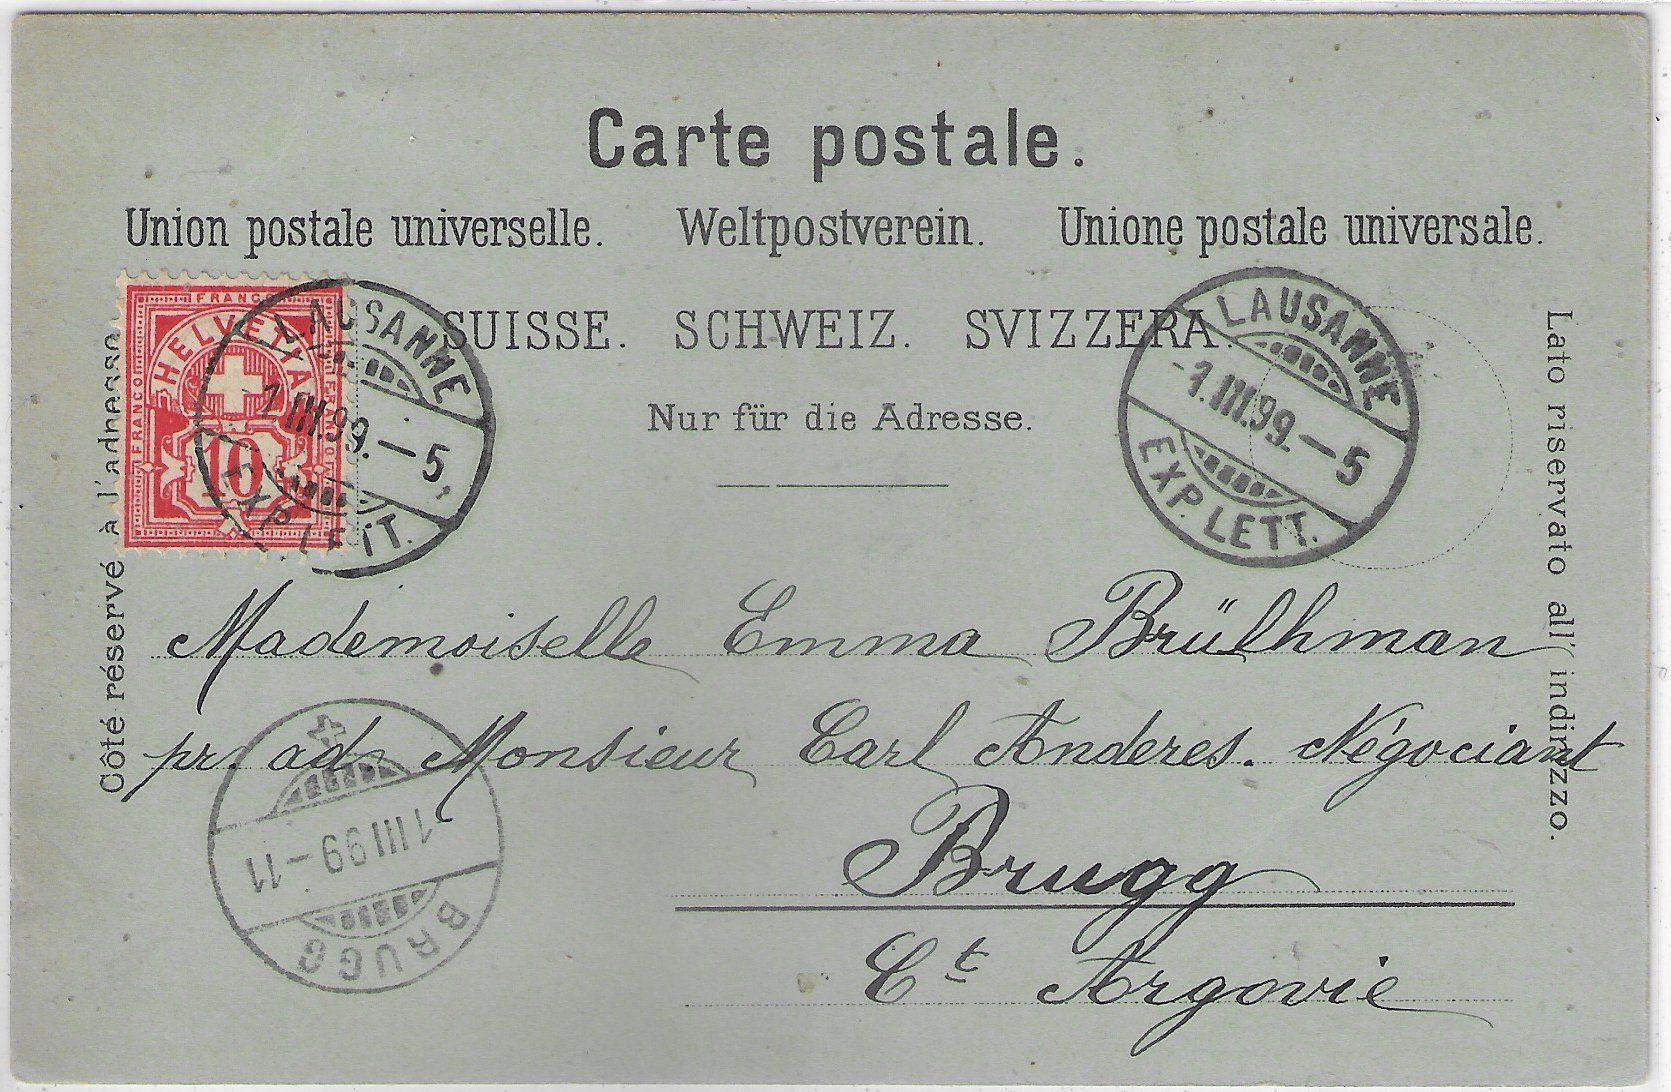 Carte postale.
Union postale universelle. Weltpostverein. Unione postale universale.
SUISSE. SCHWEIZ. SVIZZERA.
Nur für die Adresse.
Côté réservé à l'adresse
Lato riservato all' indirizzo.
FRANCO
FRANCO
FRANCO
HELVETIA
10
LAUSANNE
1.III.99.-5
EXP. LETT.
LAUSANNE
-1.III.99.-5
EXP. LETT.
Mademoiselle Emma Brülhman
pr. ad. Monsieur Carl Anderes. Négociant
Brugg
Ct Argovie
BRUGG
1 III 99-11